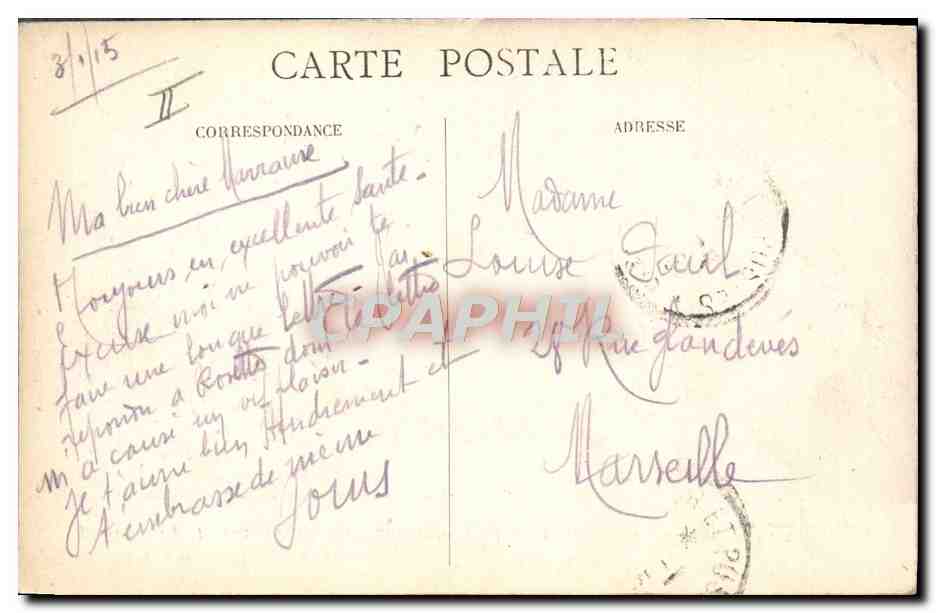 3/1/15
II
CARTE POSTALE
CORRESPONDANCE
ADRESSE
Ma bien chère Marraine
Toujours en excellente santé.
Excuse moi ne pouvoir te
faire une longue lettre. J'ai
répondu à dont la lettre
m'a causé un vif plaisir.
Je t'aime bien tendrement et
t'embrasse de même
Madame
Louise
28 Rue Glandevès
Marseille
CPAPHIL